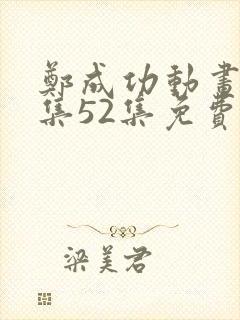 鄭成功動畫
集52集免費
梁美君